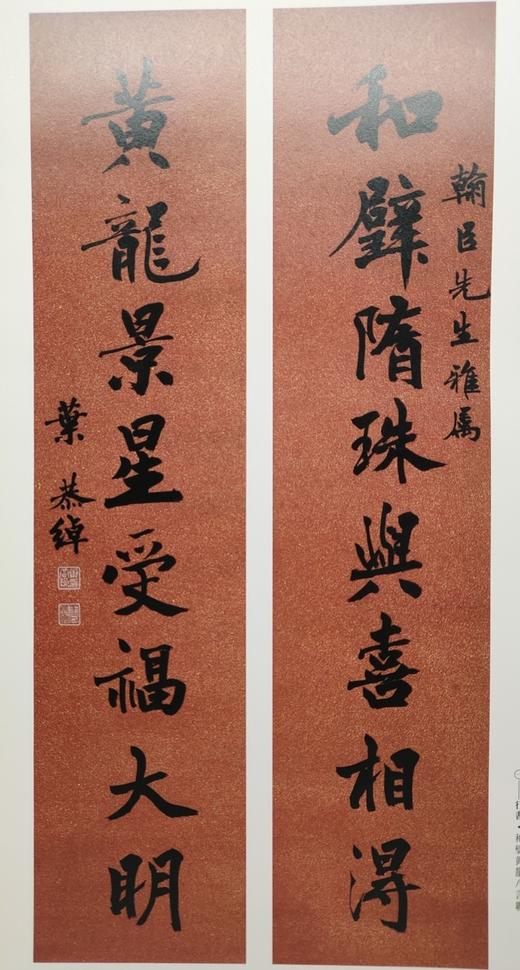 和璧隋珠與喜相得
翰臣先生雅属
黃龍景星受福大明
葉恭綽